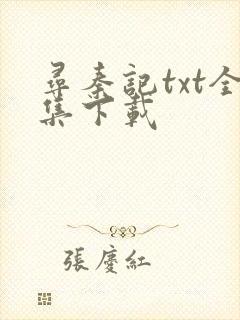 尋秦記txt全
集下載
張慶紅